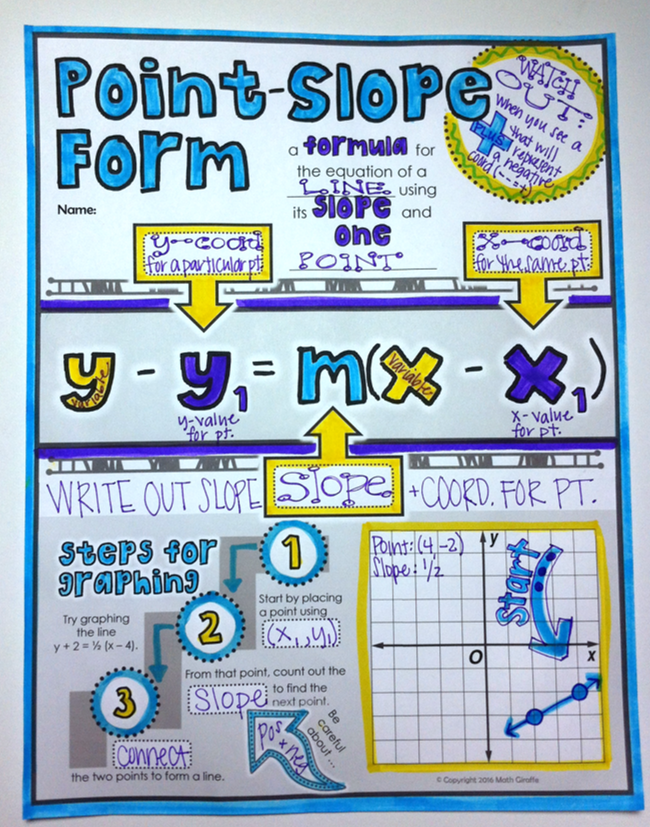 Point-Slope
Form
WATCH
OUT:
When you see a
PLUS that will
represent
a negative
coord (- - = +)
a formula for
the equation of a
LINE using
its Slope and
one
POINT
Name:
y-coord
for a particular pt.
x-coord
for the same pt.
y - y1 = m(x - x1)
variable
variable
y-value
for pt.
x-value
for pt.
WRITE OUT SLOPE
Slope
+ COORD. FOR PT.
Steps for
graphing
Try graphing
the line
y + 2 = ½ (x – 4).
1
Start by placing
a point using
(x1, y1)
2
From that point, count out the
Slope to find the
next point.
Be
careful
about...
pos
+ neg
3
Connect
the two points to form a line.
Point: (4,-2)
Slope: 1/2
y
Start
O
x
© Copyright 2016 Math Giraffe